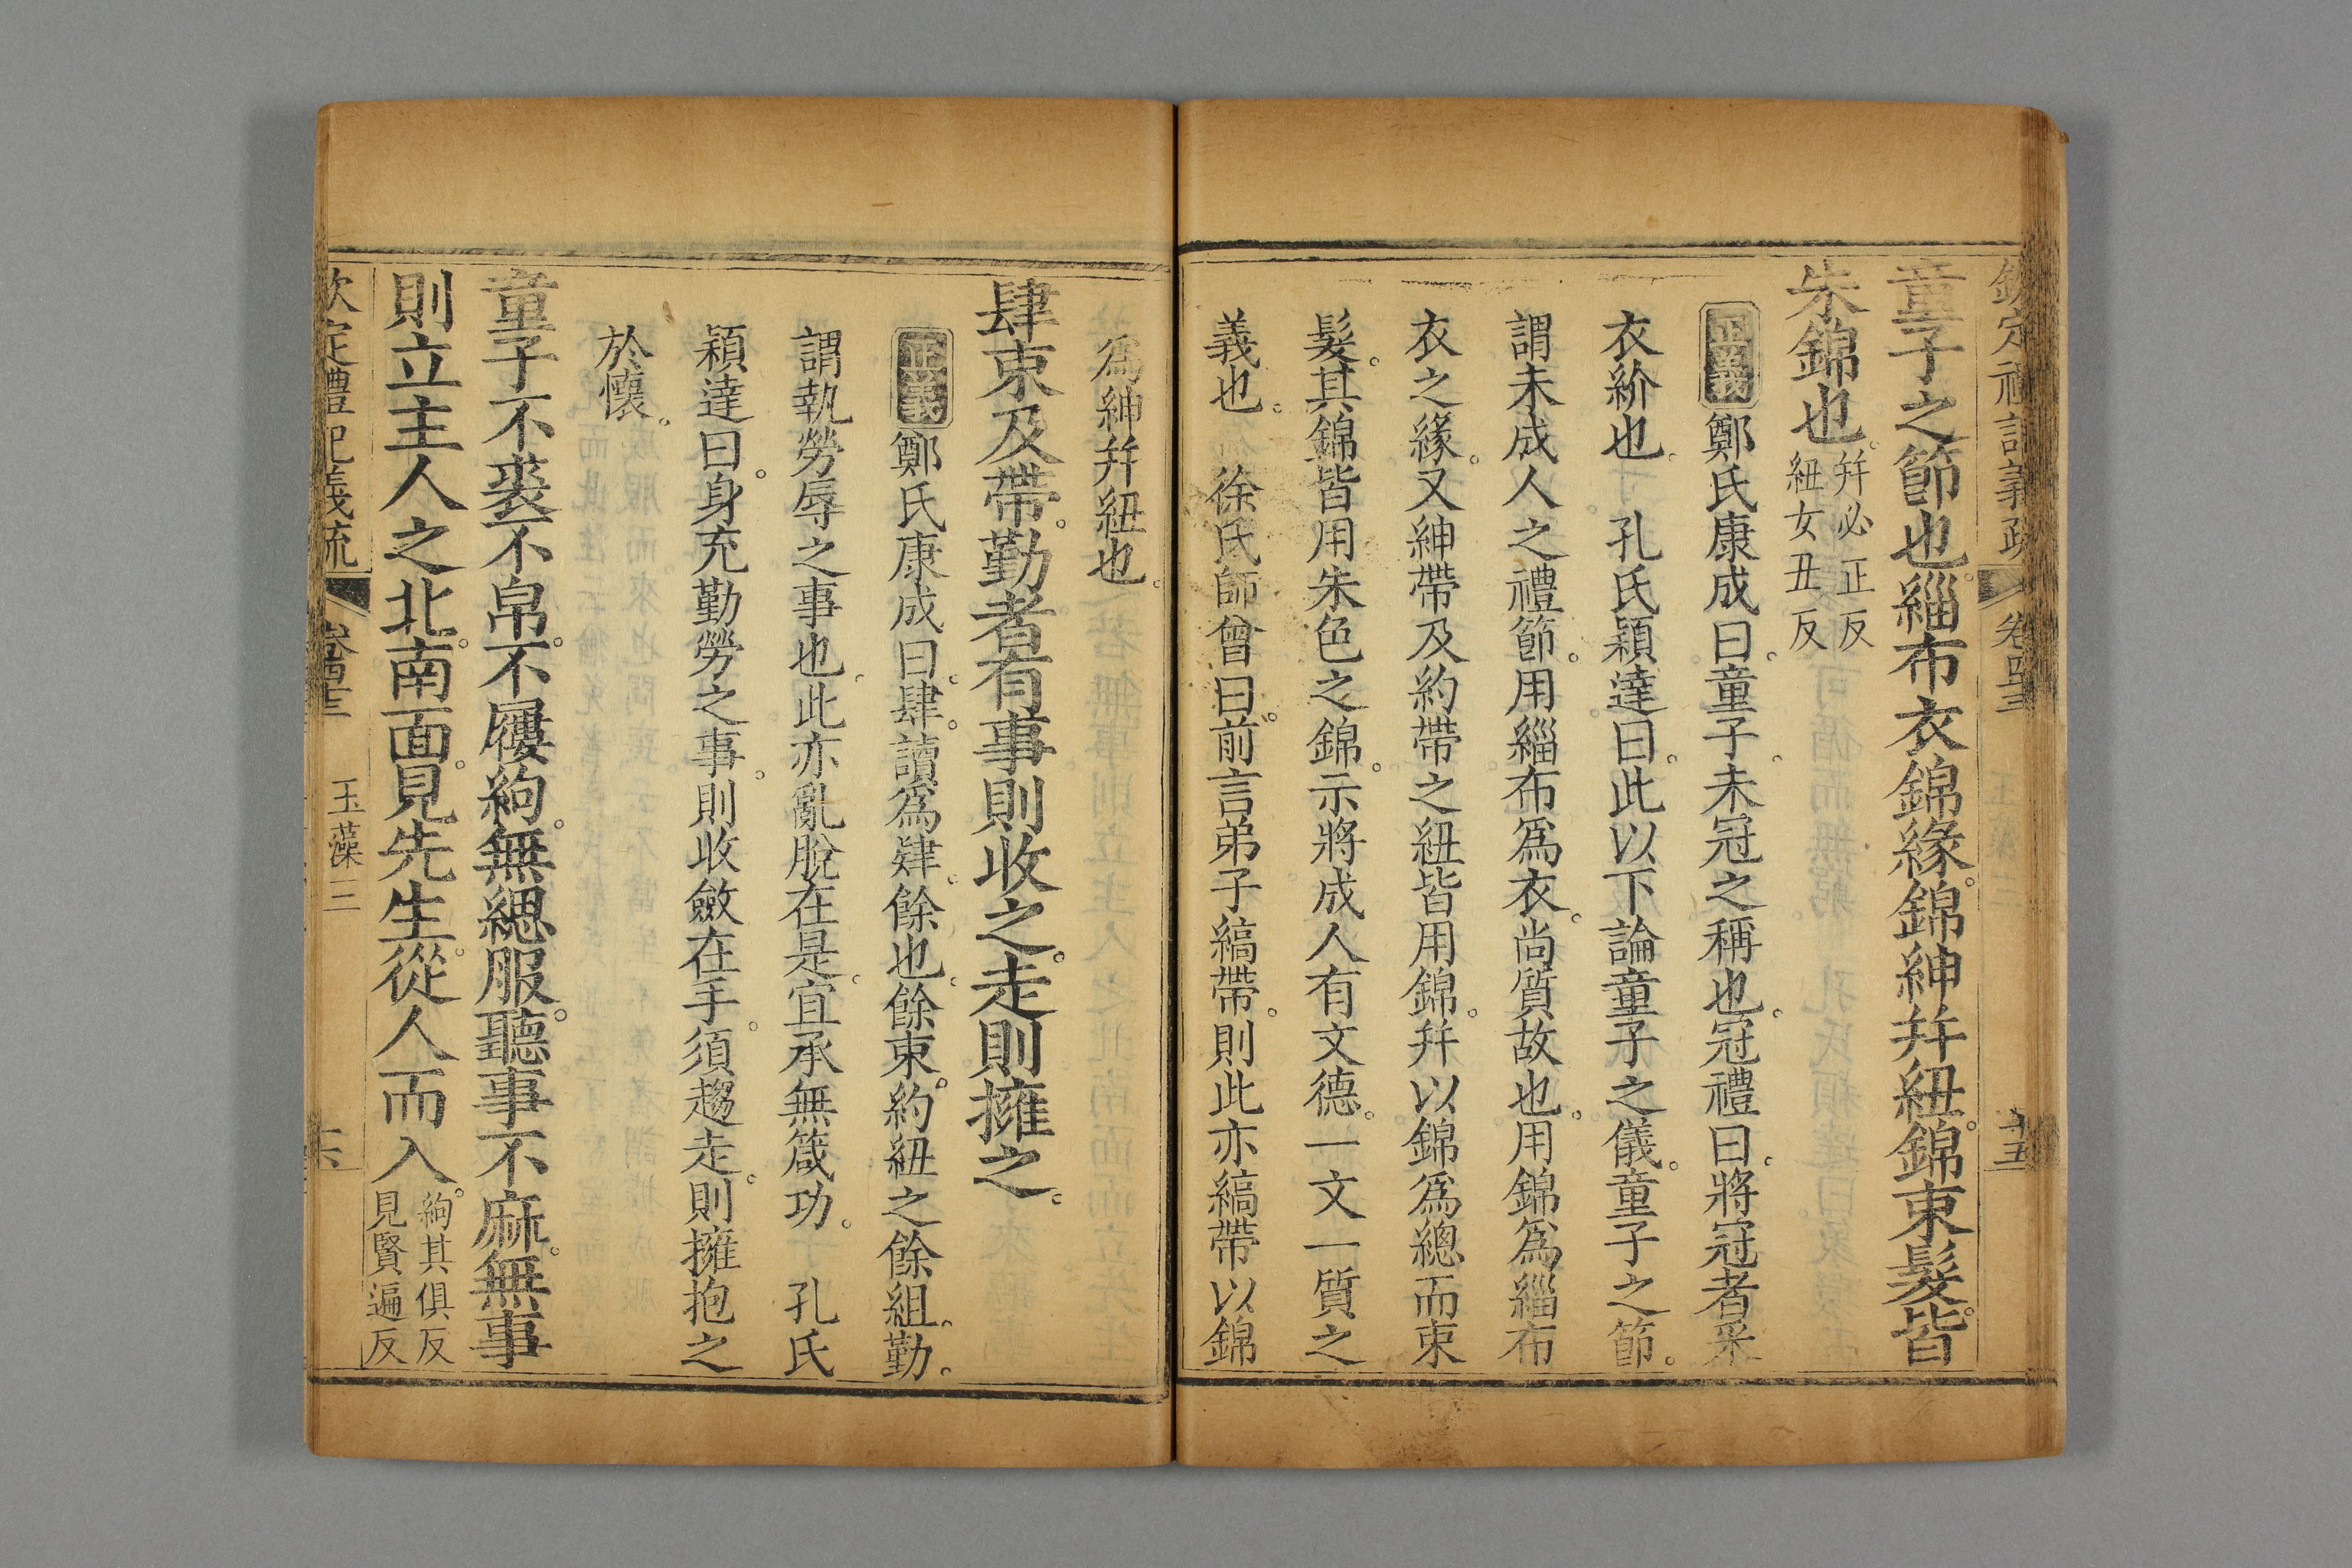 欽定禮記義疏 卷四十三 玉藻三 十五
童子之節也緇布衣錦緣錦紳并紐錦束髮皆
朱錦也。并必正反
紐女丑反
正義 鄭氏康成曰。童子。未冠之稱也。冠禮曰。將冠者采
衣紒也。 孔氏穎達曰。此以下論童子之儀。童子之節。
謂未成人之禮節。用緇布爲衣。尚質故也。用錦爲緇布
衣之緣。又紳帶及約帶之紐皆用錦。并以錦爲總而束
髮。其錦皆用朱色之錦。示將成人有文德。一文一質之
義也。 徐氏師曾曰。前言弟子縞帶。則此亦縞帶以錦
爲紳并紐也。
肆束及帶。勤者有事則收之。走則擁之。
正義 鄭氏康成曰。肆。讀爲肄。餘也。餘束。約紐之餘組。勤。
謂執勞辱之事也。此亦亂脫在是。宜承無箴功。 孔氏
穎達曰。身充勤勞之事。則收斂在手。須趨走。則擁抱之
於懷。
童子不裘不帛。不屨絇。無緦服。聽事不麻。無事
則立主人之北。南面。見先生。從人而入。絇其俱反
見賢遍反
欽定禮記義疏 卷四十三 玉藻三 十六